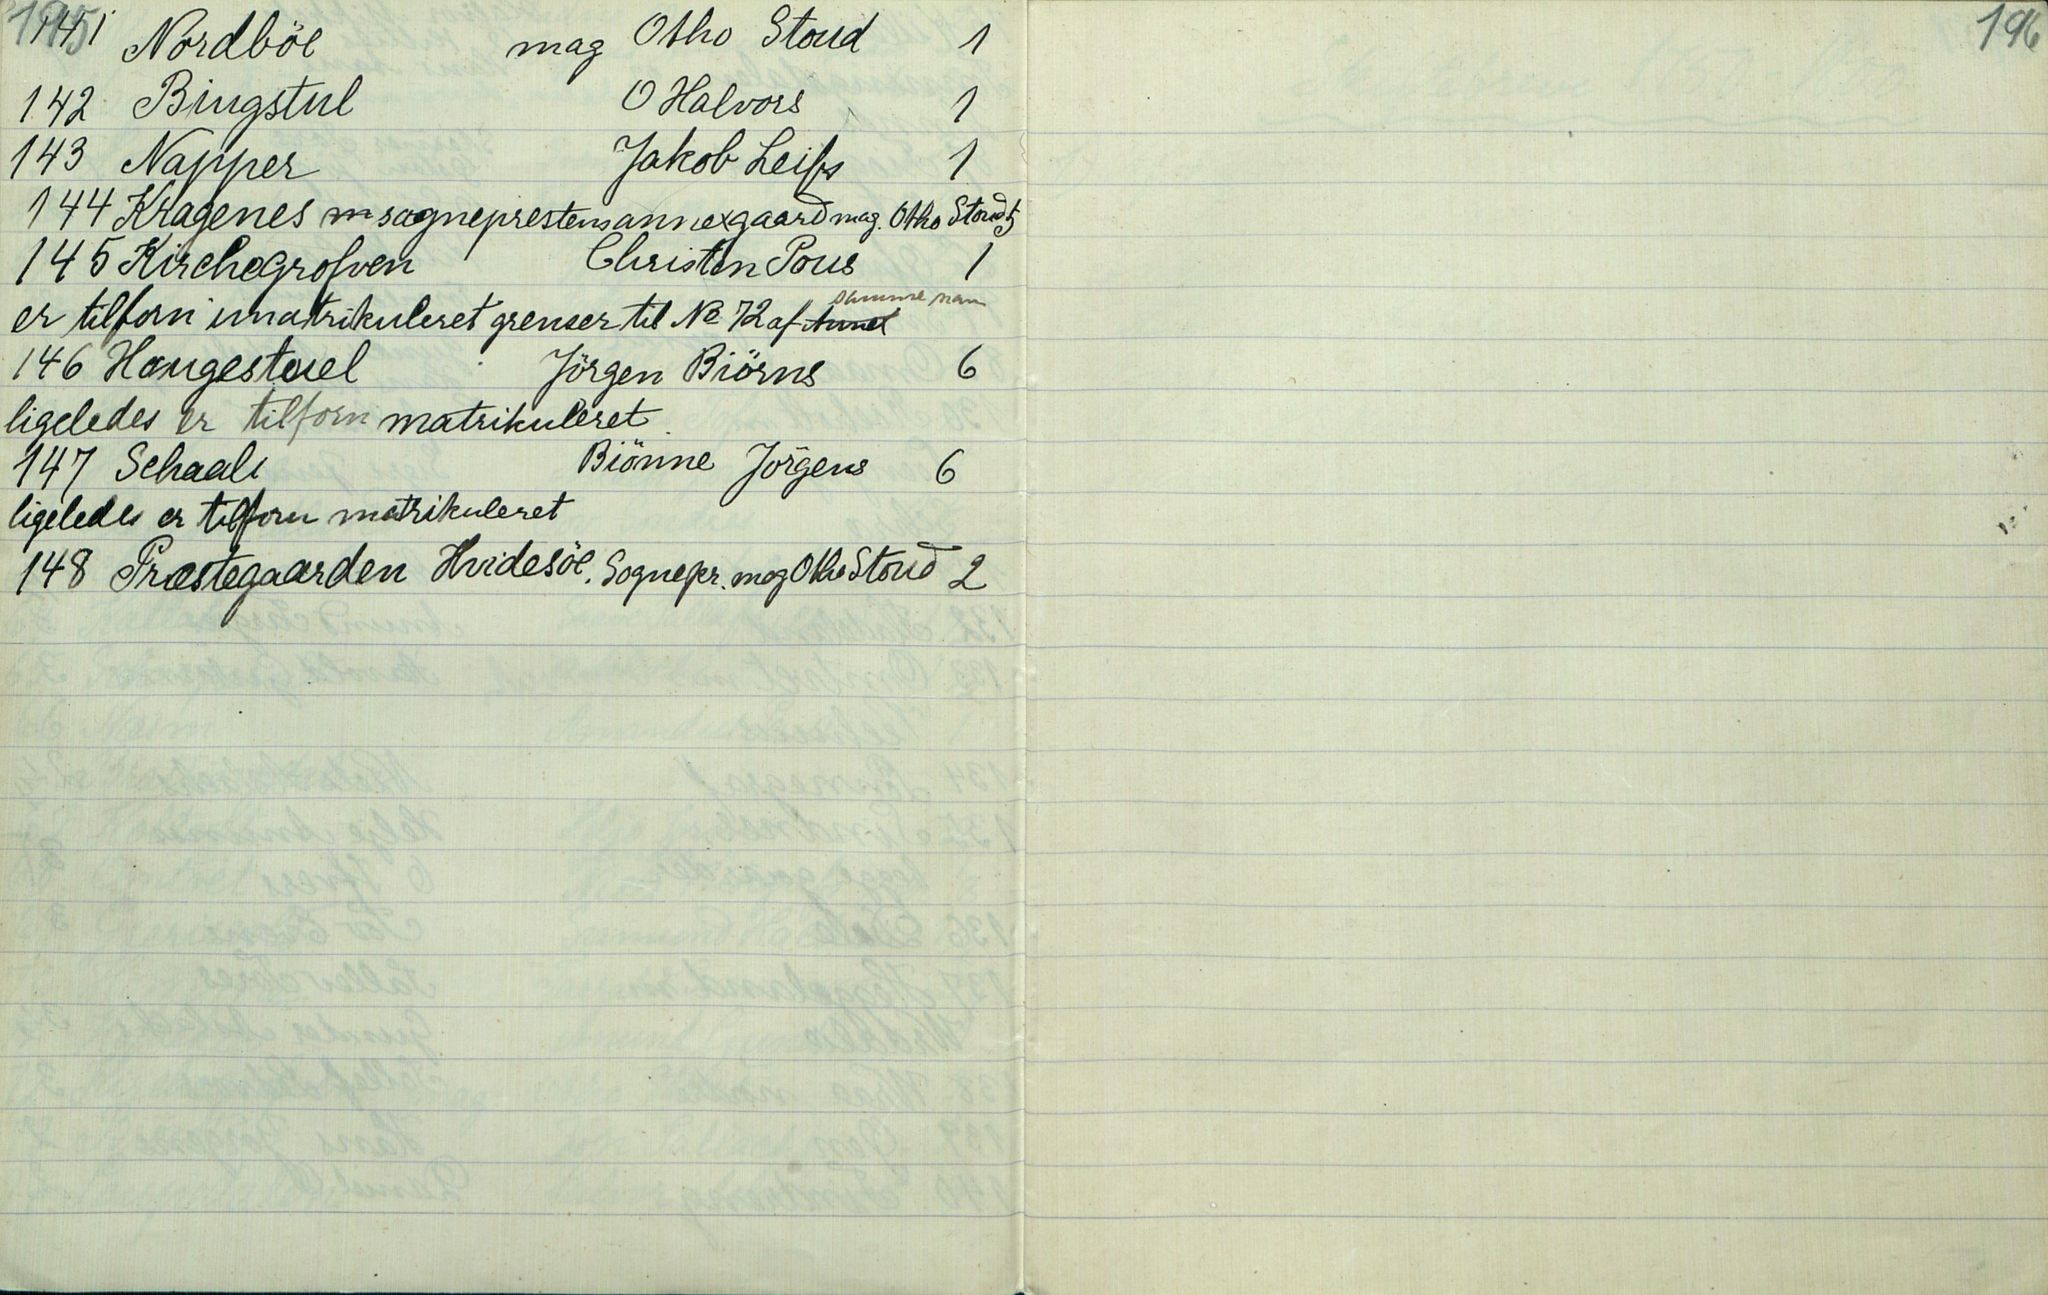 195
141 Nordböe mag Otho Stoud 1
142 Bingstul O Halvors 1
143 Napper Jakob Leifs 1
144 Kragenes m sogneprestens annexgaard mag. Otho Stoud 5
145 Kirchegrofven Christen Pous 1
samme navn
er tilforn umatrikuleret grenser til No 72 af
146 Haugestuel Jörgen Biörns 6
ligeledes er tilforn matrikuleret
147 Schaali Biönne Jörgens 6
ligeledes er tilforn matrikuleret
148 Præstegaarden Hvidesöe. Sognepr. mag Otho Stoud 2
196